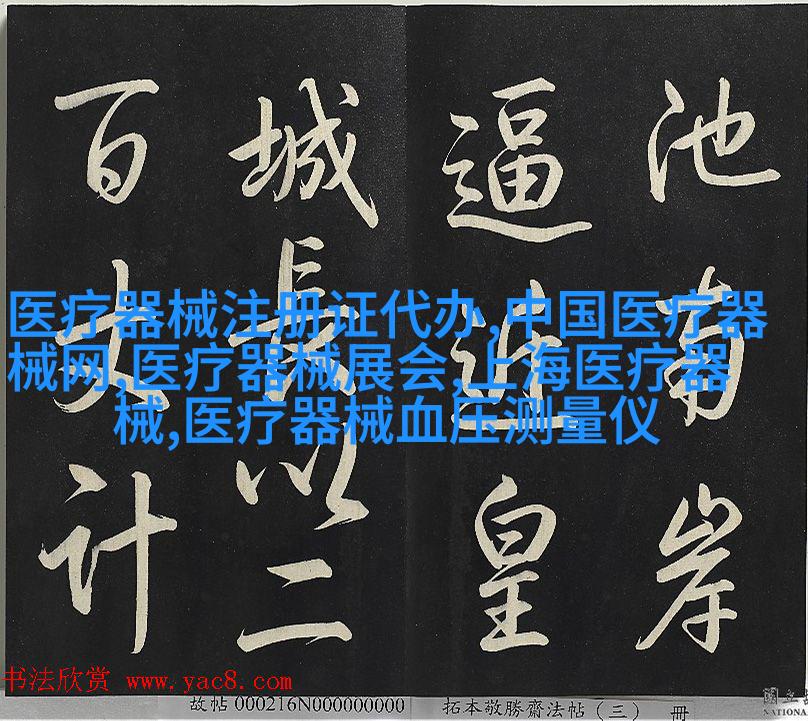 池南岸
逼近皇
城長以二
百丈計
医疗器械注册证代办,中国医疗器
械网,医疗器械展会,上海医疗器
械,医疗器械血压测量仪
书法欣赏 www.yac8.com
故帖 000216N000000000 拓本敬勝齋法帖（三） 册
國立
NATIONA